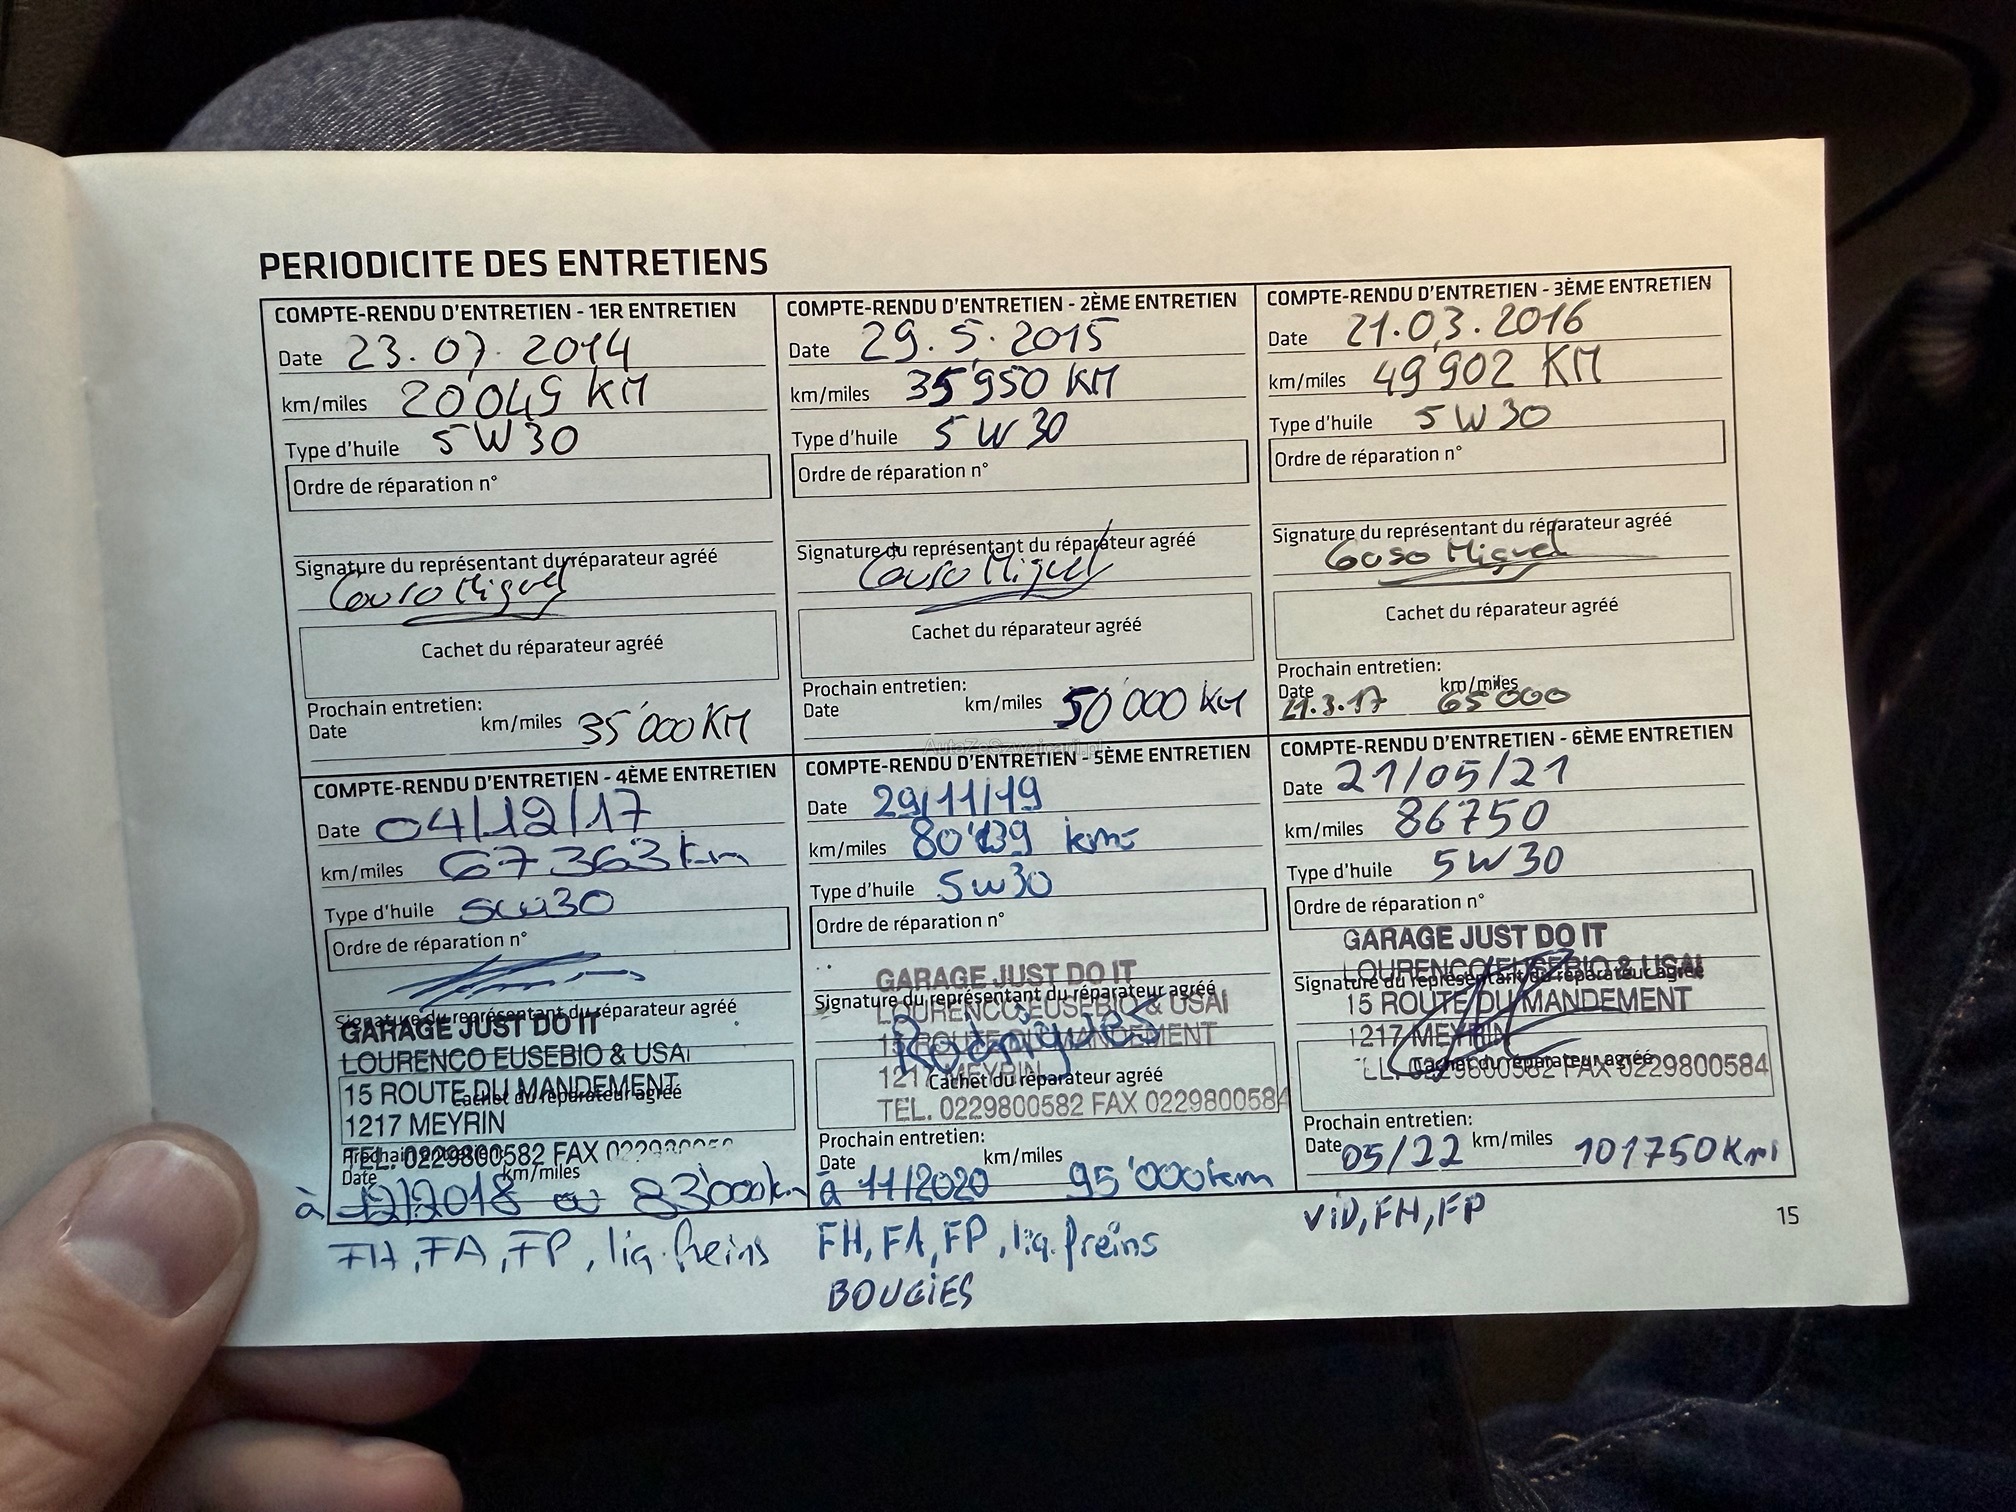 PERIODICITE DES ENTRETIENS
COMPTE-RENDU D'ENTRETIEN - 1ER ENTRETIEN
Date 23.07.2014
km/miles 20'049 KM
Type d'huile 5W30
Ordre de réparation n°
Signature du représentant du réparateur agréé
Miguel
Cachet du réparateur agréé
Prochain entretien:
Date km/miles 35'000 KM
COMPTE-RENDU D'ENTRETIEN - 2ÈME ENTRETIEN
Date 29.5.2015
km/miles 35'950 KM
Type d'huile 5W30
Ordre de réparation n°
Signature du représentant du réparateur agréé
Miguel
Cachet du réparateur agréé
Prochain entretien:
Date km/miles 50'000 KM
COMPTE-RENDU D'ENTRETIEN - 3ÈME ENTRETIEN
Date 21.03.2016
km/miles 49'902 KM
Type d'huile 5W30
Ordre de réparation n°
Signature du représentant du réparateur agréé
Miguel
Cachet du réparateur agréé
Prochain entretien:
Date km/miles
21.3.17 65'000
COMPTE-RENDU D'ENTRETIEN - 4ÈME ENTRETIEN
Date 04/12/17
km/miles 67363 km
Type d'huile 5w30
Ordre de réparation n°
Signature du représentant du réparateur agréé
GARAGE JUST DO IT
LOURENCO EUSEBIO & USAI
15 ROUTE DU MANDEMENT
Cachet du réparateur agréé
1217 MEYRIN
TEL. 0229800582 FAX
Prochain entretien:
Date km/miles
à 12/2018 ou 83'000km
FH, FA, FP, liq. freins
COMPTE-RENDU D'ENTRETIEN - 5ÈME ENTRETIEN
Date 29/11/19
km/miles kms
Type d'huile 5w30
Ordre de réparation n°
GARAGE JUST DO IT
Signature du représentant du réparateur agréé
LOURENCO EUSEBIO & USAI
Rodrigues
15 ROUTE DU MANDEMENT
1217 MEYRIN
Cachet du réparateur agréé
TEL. 0229800582 FAX 0229800584
Prochain entretien:
Date km/miles
à 11/2020 95'000km
FH, FA, FP, liq. freins
BOUGIES
COMPTE-RENDU D'ENTRETIEN - 6ÈME ENTRETIEN
Date 21/05/21
km/miles 86750
Type d'huile 5W30
Ordre de réparation n°
GARAGE JUST DO IT
LOURENCO EUSEBIO & USAI
Signature du représentant du réparateur agréé
15 ROUTE DU MANDEMENT
1217 MEYRIN
Cachet du réparateur agréé
0229800582 FAX 0229800584
Prochain entretien:
Date 05/22 km/miles 101750 Km
ViD, FH, FP
15
AutaZeSzwajcarii.pl